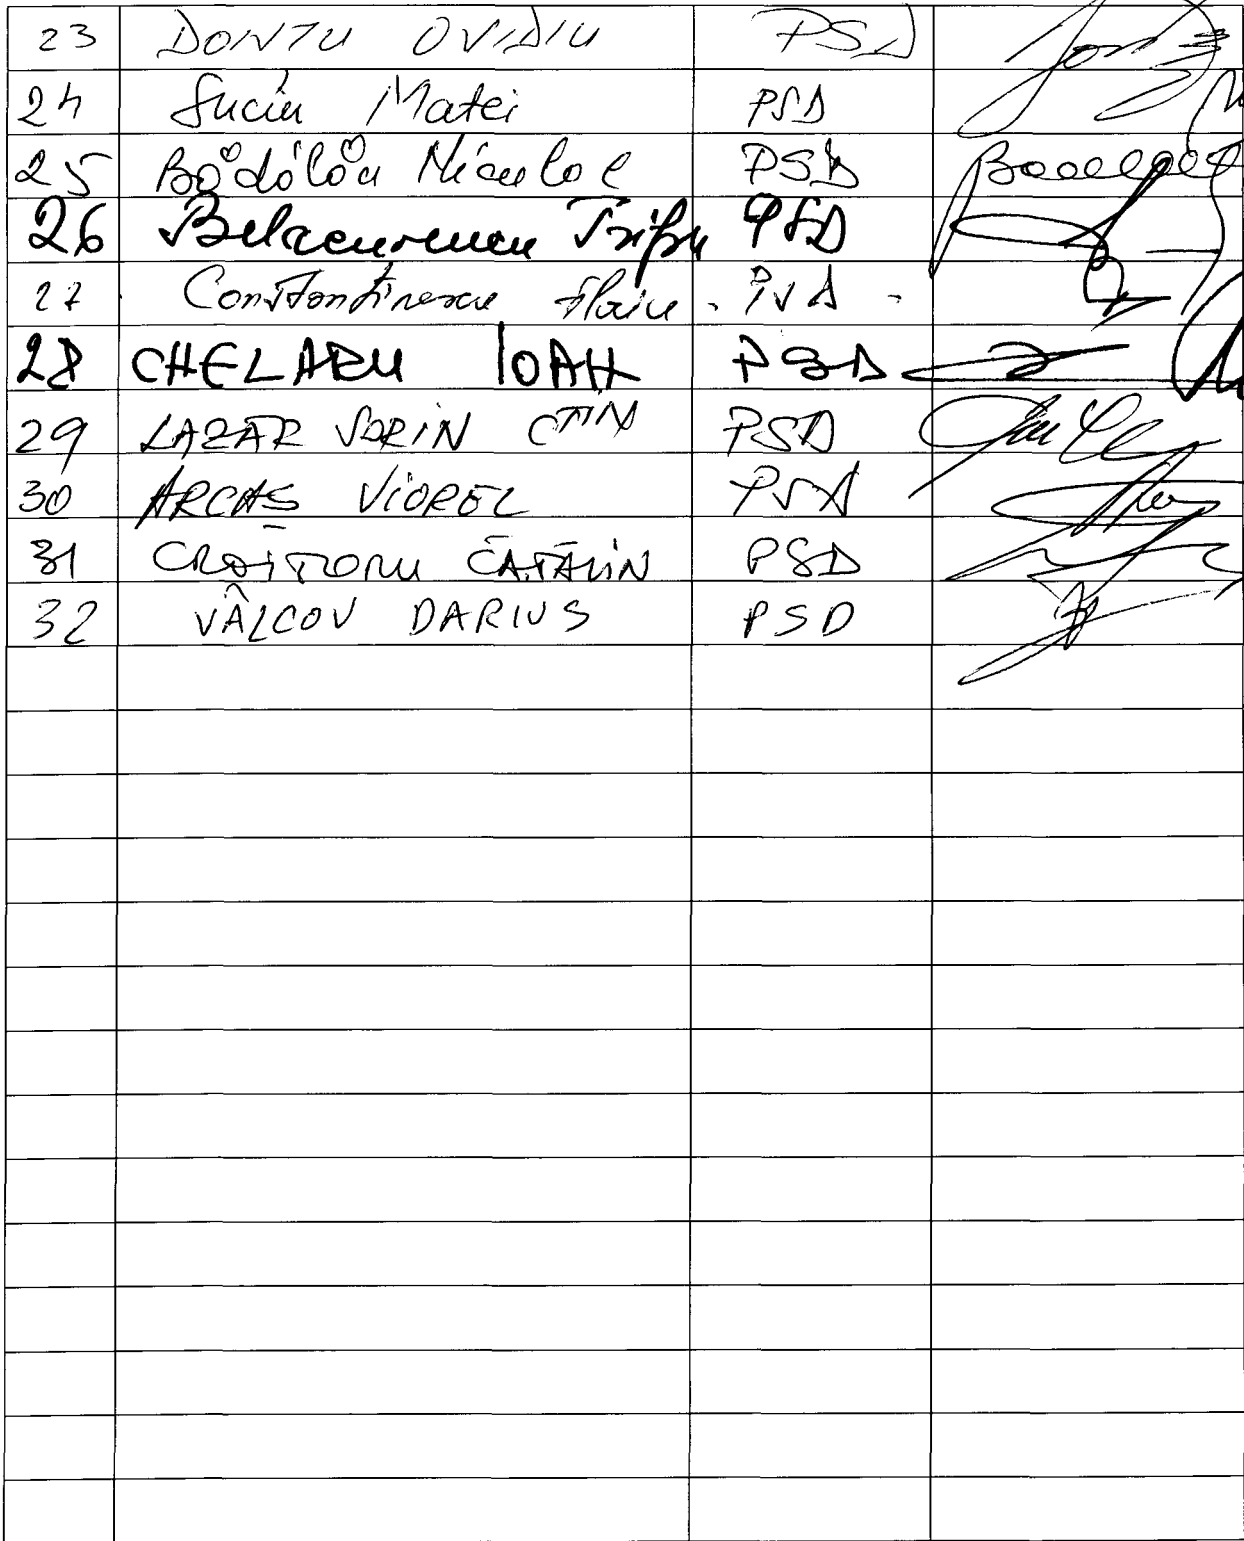 23 DONTU OVIDIU PSD
24 Suciu Matei PSD
25 Bădălău Niculae PSD
26 Belacurencu Trifon PSD
27 Constantinescu Florin PSD
28 CHELARU IOAN PSD
29 LAZĂR SORIN CTIN PSD
30 ARCAŞ VIOREL PSD
31 CROITORU CĂTĂLIN PSD
32 VÂLCOV DARIUS PSD